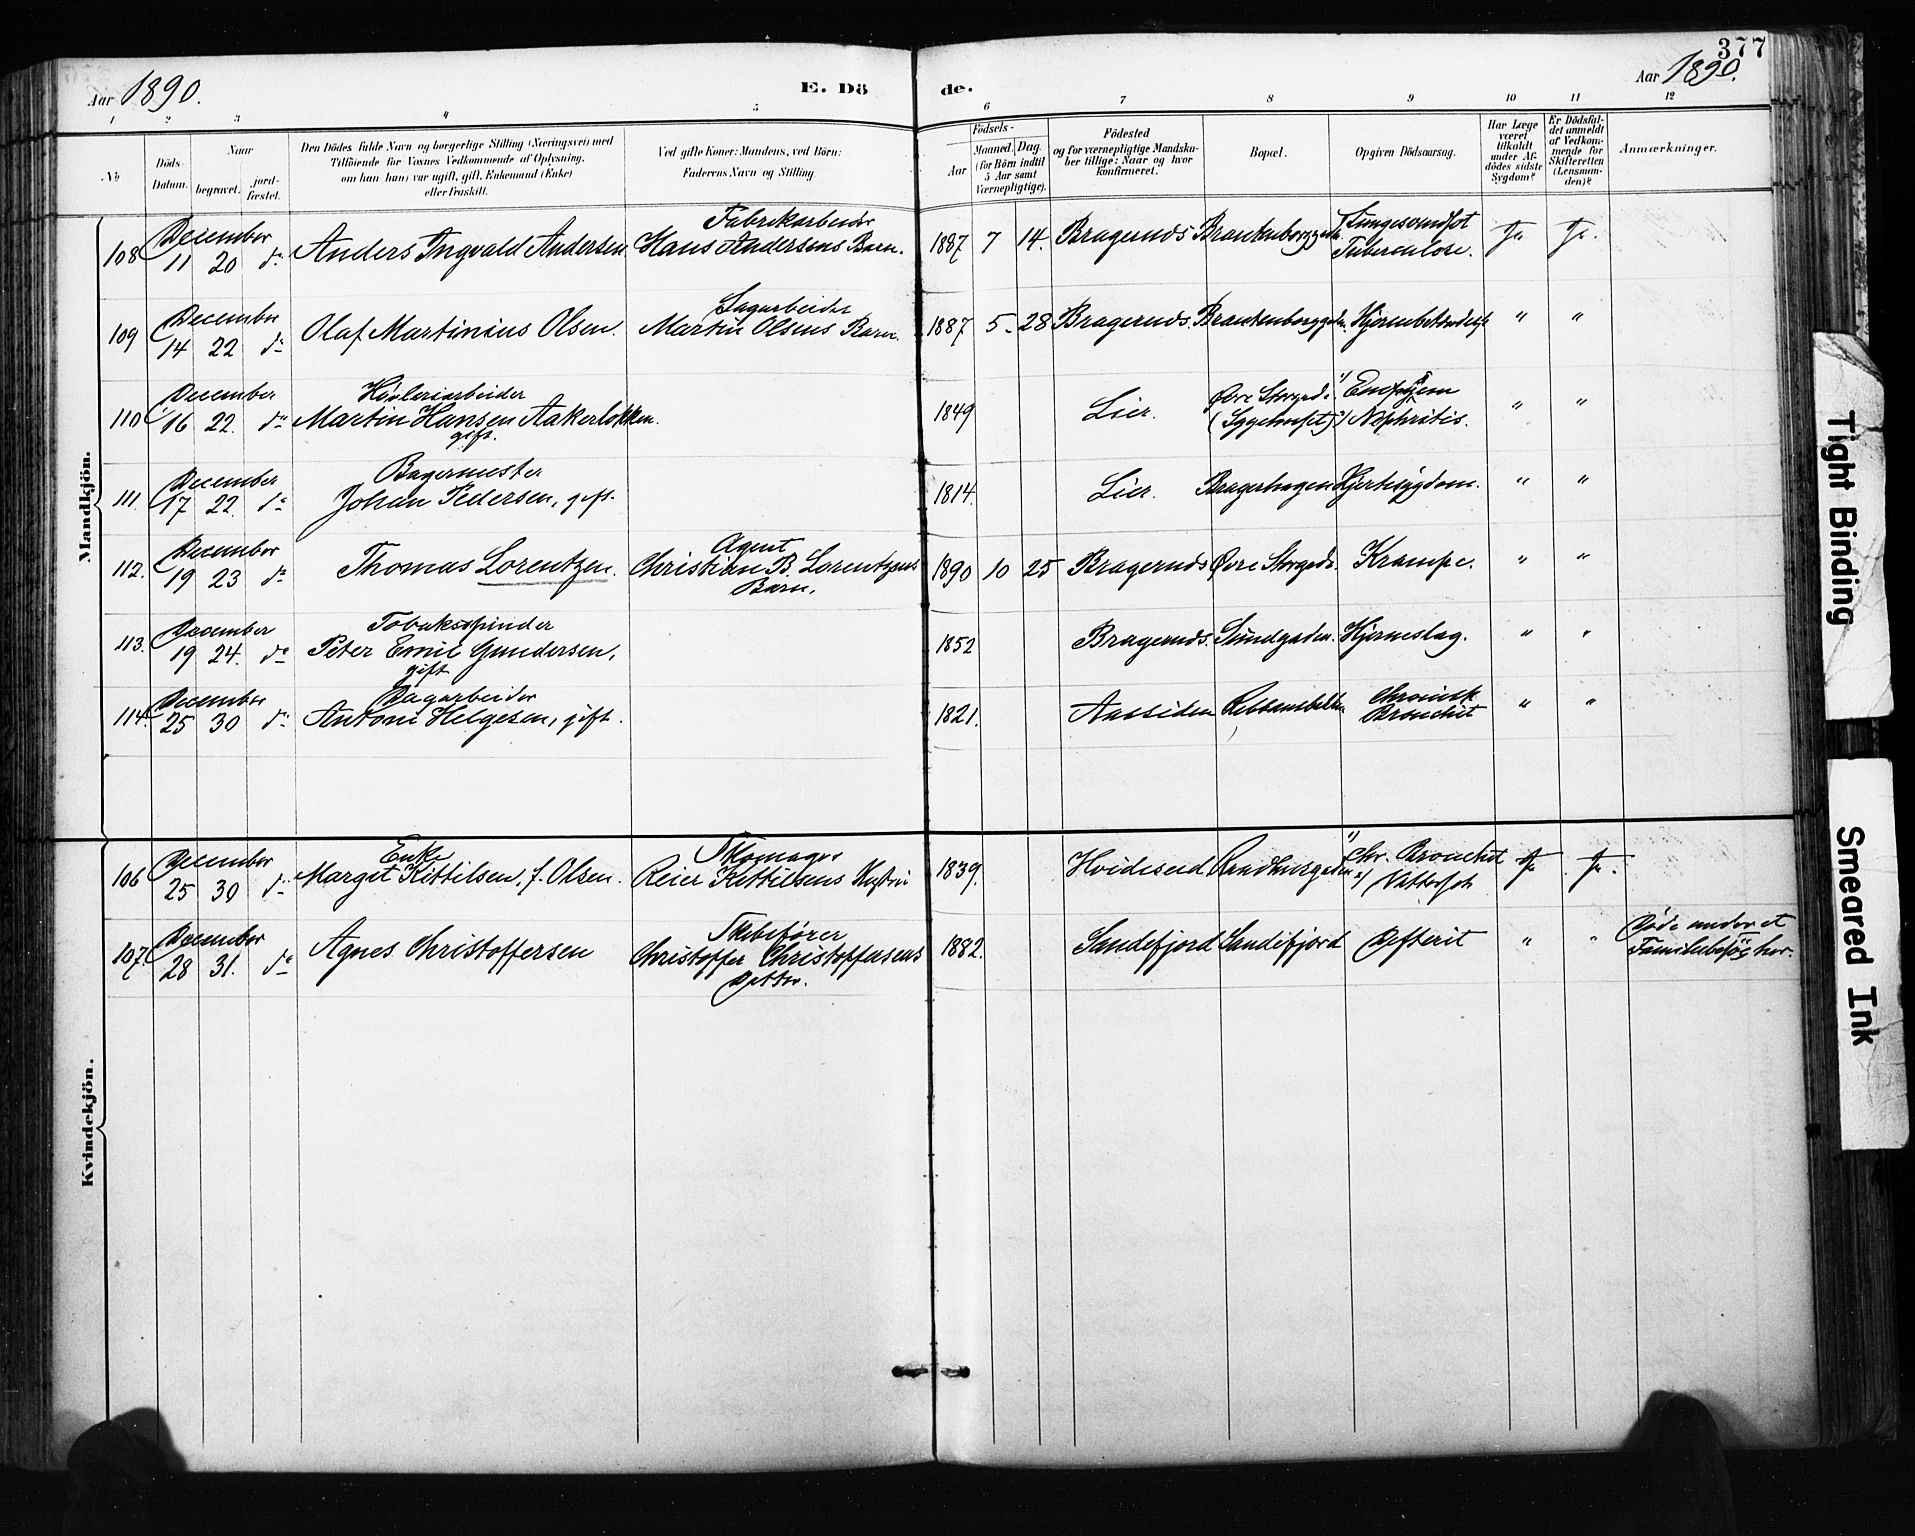 377
Aar 1890.
E. Dö
de.
Aar 1890.
1 2 3 4 5 6 7 8 9 10 11 12
No
Döds-
Datum.
Naar
begravet.
jord-
fæstet.
Den Dödes fulde Navn og borgerlige Stilling (Næringsvei) med
Tilföiende for Voxnes Vedkommende af Oplysning,
om han (hun) var ugift, gift, Enkemand (Enke)
eller fraskilt.
Ved gifte Koner: Mandens, ved Börn:
Faderens Navn og Stilling.
Födsels-
Aar
Maaned. Dag.
(for Börn indtil
5 Aar samt
Værnepligtige).
Födested
og for værnepligtige Mandska-
ber tillige: Naar og hvor
konfirmeret.
Bopæl.
Opgiven Dödsaarsag.
Har Læge
været
tilkaldt
under Af-
dödes sidste
Sygdom?
Er Dödsfal-
det anmeldt
af Vedkom-
mende for
Skifteretten
(Lensman-
den)?
Anmærkninger.
Mandkjön.
December Fabrikarbeider Lungesvindsot
108 11 20 do Anders Ingvald Andersen Hans Andersens Barn. 1887 7 14. Bragernds Brantenborggaden Tuberculose. Ja Ja.
December Sagarbeider
109 14 22 do Olaf Martinius Olsen. Martin Olsens Barn. 1887 5 28 Bragernds. Brantenborggaden. Hjernebetændelse " "
December Høvleriarbeider Øvre Storgade 1) Emphysem
110 16 22. do Martin Hansen Aakerløkken. 1849 Lier. (Sygehuset) 2) Nephritis. " "
gift.
December Bagermester
111. 17 22. do Johan Pedersen, gift. 1814. Lier. Bragerhagen Hjertesygdom. " "
December Agent
112. 19 23 do Thomas Lorentzen. Christian B. Lorentzens 1890 10 25 Bragernds Øvre Storgade. Krampe. " "
Barn.
December Tobaksspinder
113. 19 24. do Peter Emil Gundersen, 1852 Bragernds. Sundgaden. Hjerneslag. " "
gift
December Dagarbeider chronisk
114. 25 30 do Anton Helgesen, gift. 1821. Aassiden Bronchit " "
Kvindekjön.
December Enke Skomager 1) chr. Bronchit
106 25 30 do Margit Kittilsen, f. Olsen. Reier Kittilsens Hustru 1839. Hvideseid Raadhusgaden 2) Vattersot Ja Ja.
December Skibsfører Døde under et
107. 28 31. do Agnes Christoffersen Christoffer Christoffersens 1882. Sandefjord Sandefjord Difterit " " Familiebesøg her.
Datter.
Tight Binding
Smeared Ink